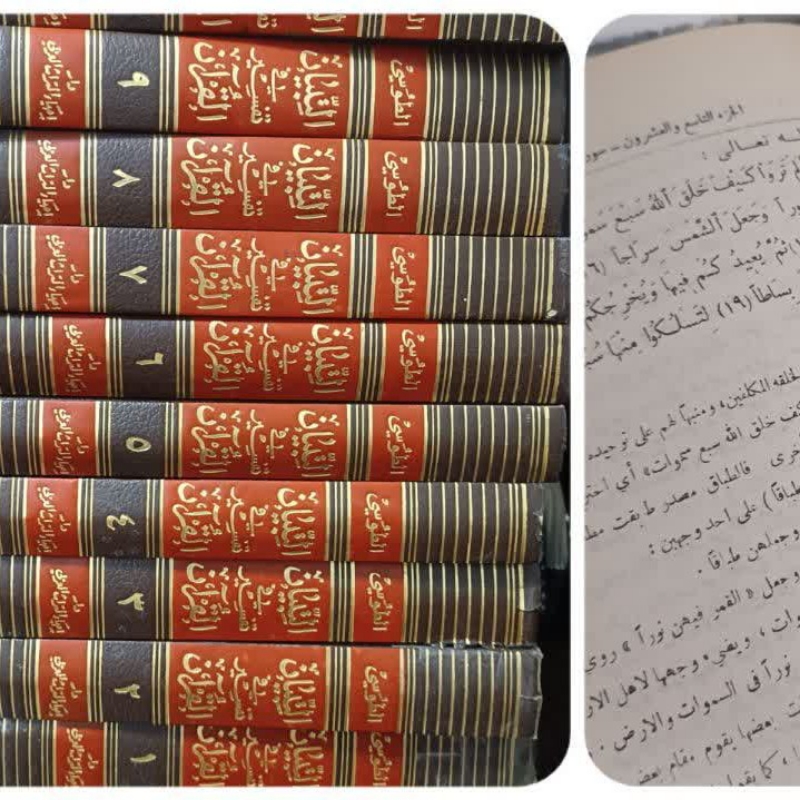 الطوسي
التبيان في تفسير القرآن
٩
دار إحياء التراث العربي
الطوسي
التبيان في تفسير القرآن
٨
دار إحياء التراث العربي
الطوسي
التبيان في تفسير القرآن
٧
دار إحياء التراث العربي
الطوسي
التبيان في تفسير القرآن
٦
دار إحياء التراث العربي
الطوسي
التبيان في تفسير القرآن
٥
دار إحياء التراث العربي
الطوسي
التبيان في تفسير القرآن
٤
دار إحياء التراث العربي
الطوسي
التبيان في تفسير القرآن
٣
دار إحياء التراث العربي
الطوسي
التبيان في تفسير القرآن
٢
دار إحياء التراث العربي
الطوسي
التبيان في تفسير القرآن
١
دار إحياء التراث العربي
الجزء التاسع والعشرون - سور
له تعالى :
تَرَوْا كَيْفَ خَلَقَ اللهُ سَبْعَ سَمو
وراً وَجَعَلَ الشَّمْسَ سِرَاجاً
ثُمَّ يُعِيدُ كُمْ فِيهَا وَيُخْرِجُكُمْ
بِسَاطاً (١٩) لِتَسْلُكُوا مِنْهَا سُب
لخلقه المكلفين، ومنبهاً لهم على توحيده
كيف خلق الله سبع سموات» أي اختر
خرى فالطباق مصدر طابقت مط
طباقاً) على احد وجهين :
وجعلهن طباقا .
وجعل « القمر فيهن نوراً » روي
وات ، ويضيء وجهها لاهل الار
نوراً في السموات والارض .
بعضها بقوم مقام بعض
، كما يقو